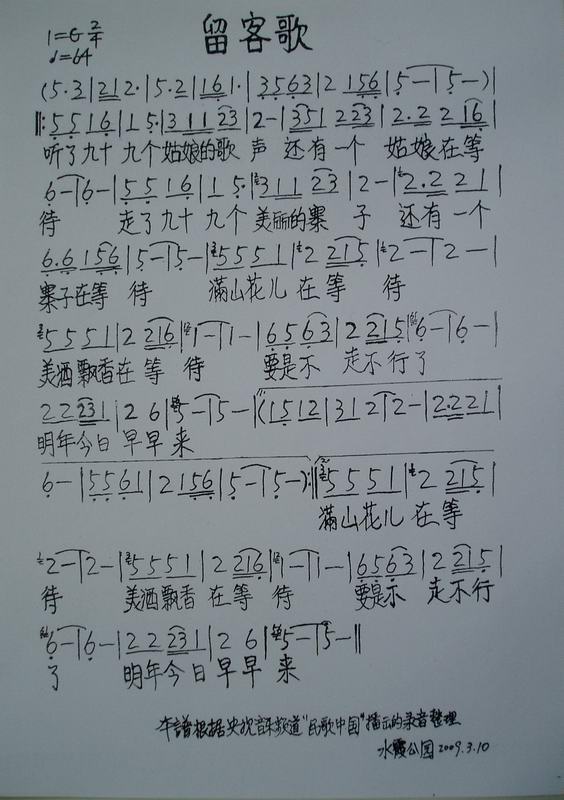 留客歌
1=G 2/4
♩=64
(5·3|212·|5·2|161·|3563|2 156|5-|5-)|
‖:5516|15·|311 23|2-|351 223|2·2 216|
听了九十 九个姑娘的歌 声 还有一个 姑娘在等
6-|6-|5516|15·|311 23|2-|2·2 21|
待 走了九十 九个 美丽的寨 子 还有一个
6·6 156|5-|5-|5551|2 215|2-|2-|
寨子在等 待 满山花儿 在等 待
5551|2 216|1-|1-|6563|2 215|6-|6-|
美酒飘香在等 待 要是不 走不行了
22231|26|5-|5-|(1512|31 2|2-|2·221|
明年今日 早早 来
6-|5561|2156|5-|5-):‖5551|2 215|
满山花儿 在等
2-|2-|5551|2 216|1-|1-|6563|2 215|
待 美酒飘香 在等 待 要是不 走不行
6-|6-|22231|26|5-|5-‖
了 明年今日早早 来
本谱根据央视音乐频道"民歌中国"播出的录音整理
水霞公园2009.3.10